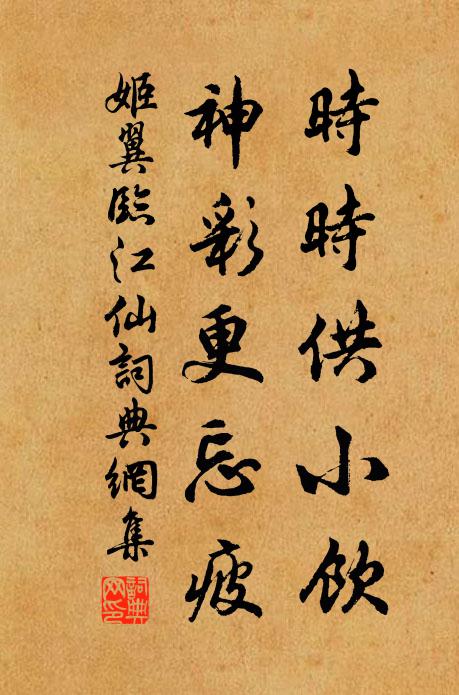 時時供小飲
神彩更忘疲
姬翼臨江仙詞典網集
詞典網印